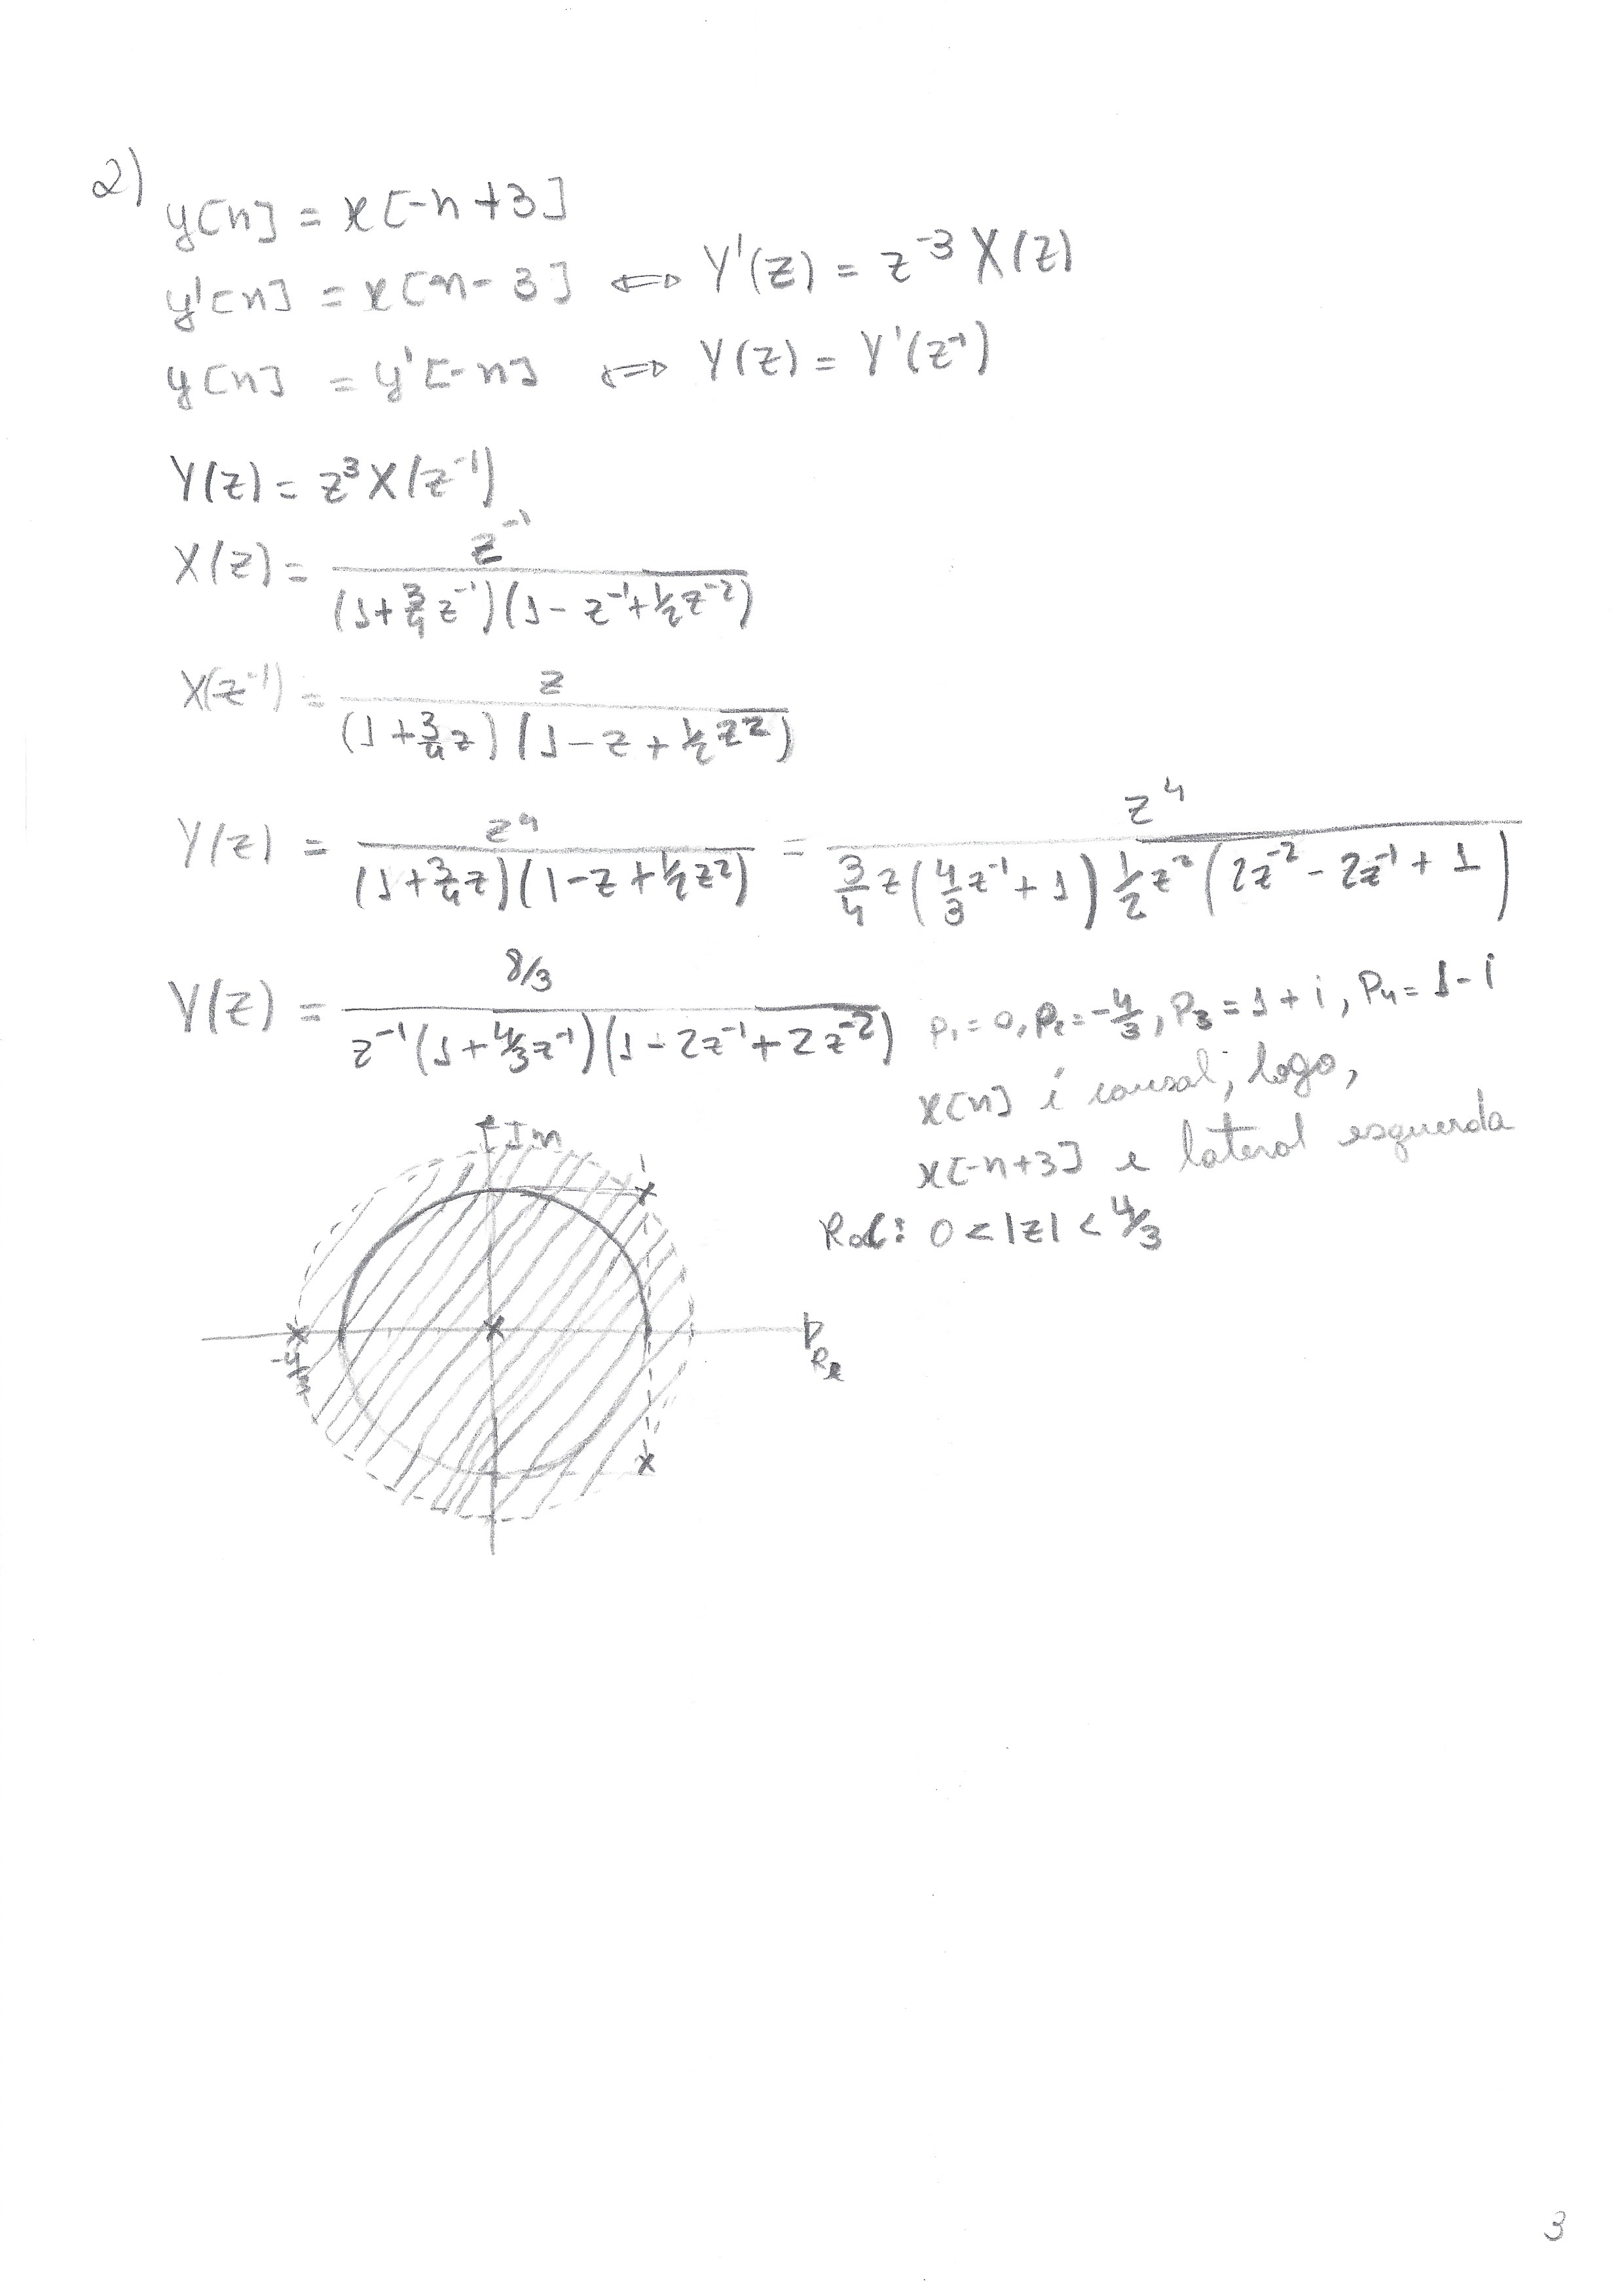 2)
y[n] = x[-n+3]
y'[n] = x[n-3] ⇔ Y'(z) = z⁻³ X(z)
y[n] = y'[-n] ⇔ Y(z) = Y'(z⁻¹)
Y(z) = z³ X(z⁻¹)
X(z) = z⁻¹ / (1 + 3/4 z⁻¹)(1 - z⁻¹ + 1/2 z⁻²)
X(z⁻¹) = z / (1 + 3/4 z)(1 - z + 1/2 z²)
Y(z) = z⁴ / (1 + 3/4 z)(1 - z + 1/2 z²) = z⁴ / 3/4 z (4/3 z⁻¹ + 1) 1/2 z² (2z⁻² - 2z⁻¹ + 1)
Y(z) = 8/3 / z⁻¹(1 + 4/3 z⁻¹)(1 - 2z⁻¹ + 2z⁻²) p₁ = 0, p₂ = -4/3, p₃ = 1 + i, p₄ = 1 - i
x[n] é causal; logo,
x[-n+3] é lateral esquerda
RoC: 0 < |z| < 4/3
Im
-4/3
Re
3